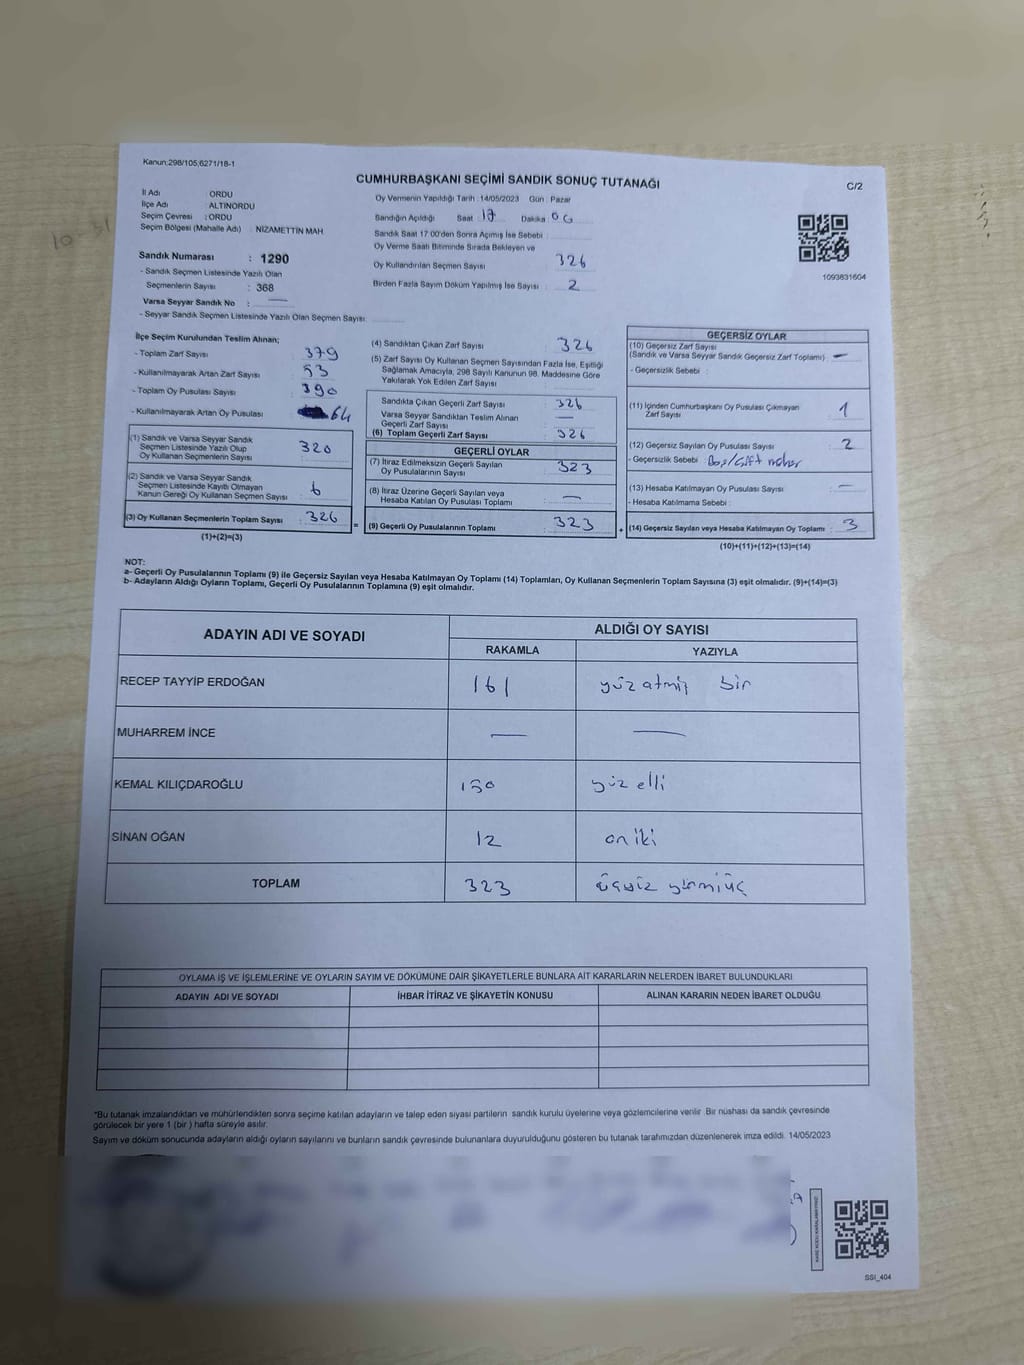 Kanun:298/105,6271/18-1
CUMHURBAŞKANI SEÇİMİ SANDIK SONUÇ TUTANAĞI
C/2
İl Adı : ORDU
İlçe Adı : ALTINORDU
Seçim Çevresi : ORDU
Seçim Bölgesi (Mahalle Adı) : NİZAMETTİN MAH.
Sandık Numarası : 1290
- Sandık Seçmen Listesinde Yazılı Olan
Seçmenlerin Sayısı : 368
Varsa Seyyar Sandık No : —
- Seyyar Sandık Listesinde Yazılı Olan Seçmen Sayısı:
Oy Vermenin Yapıldığı Tarih : 14/05/2023 Gün : Pazar
Sandığın Açıldığı Saat 17 Dakika
Sandık Saat 17:00'den Sonra Açımış İse Sebebi :
Oy Verme Saati Bitiminde Sırada Bekleyen ve
Oy Kullandırılan Seçmen Sayısı : 326
Birden Fazla Sayım Döküm Yapılmış İse Sayısı : 2
1093831604
10-31
İlçe Seçim Kurulundan Teslim Alınan;
- Toplam Zarf Sayısı : 379
- Kullanılmayarak Artan Zarf Sayısı : 53
- Toplam Oy Pusulası Sayısı : 390
- Kullanılmayarak Artan Oy Pusulası : 64
(1) Sandık ve Varsa Seyyar Sandık
Seçmen Listesinde Yazılı Olup
Oy Kullanan Seçmenlerin Sayısı : 320
(2) Sandık ve Varsa Seyyar Sandık
Seçmen Listesinde Kayıtlı Olmayan
Kanun Gereği Oy Kullanan Seçmen Sayısı : 6
(3) Oy Kullanan Seçmenlerin Toplam Sayısı : 326
(1)+(2)=(3)
(4) Sandıktan Çıkan Zarf Sayısı : 326
(5) Zarf Sayısı Oy Kullanan Seçmen Sayısından Fazla İse, Eşitliği
Sağlamak Amacıyla, 298 Sayılı Kanunun 98. Maddesine Göre
Yakılarak Yok Edilen Zarf Sayısı :
Sandıkta Çıkan Geçerli Zarf Sayısı : 326
Varsa Seyyar Sandıktan Teslim Alınan
Geçerli Zarf Sayısı : —
(6) Toplam Geçerli Zarf Sayısı : 326
GEÇERLİ OYLAR
(7) İtiraz Edilmeksizin Geçerli Sayılan
Oy Pusulalarının Sayısı : 323
(8) İtiraz Üzerine Geçerli Sayılan veya
Hesaba Katılan Oy Pusulası Toplamı : —
= (9) Geçerli Oy Pusulalarının Toplamı : 323
GEÇERSİZ OYLAR
(10) Geçersiz Zarf Sayısı
(Sandık ve Varsa Seyyar Sandık Geçersiz Zarf Toplamı) : —
- Geçersizlik Sebebi :
(11) İçinden Cumhurbaşkanı Oy Pusulası Çıkmayan
Zarf Sayısı : 1
(12) Geçersiz Sayılan Oy Pusulası Sayısı : 2
- Geçersizlik Sebebi : Boş/Çift mühür
(13) Hesaba Katılmayan Oy Pusulası Sayısı : —
- Hesaba Katılmama Sebebi :
+ (14) Geçersiz Sayılan veya Hesaba Katılmayan Oy Toplamı : 3
(10)+(11)+(12)+(13)=(14)
NOT:
a- Geçerli Oy Pusulalarının Toplamı (9) ile Geçersiz Sayılan veya Hesaba Katılmayan Oy Toplamı (14) Toplamları, Oy Kullanan Seçmenlerin Toplam Sayısına (3) eşit olmalıdır. (9)+(14)=(3)
b- Adayların Aldığı Oyların Toplamı, Geçerli Oy Pusulalarının Toplamına (9) eşit olmalıdır.
ADAYIN ADI VE SOYADI
ALDIĞI OY SAYISI
RAKAMLA YAZIYLA
RECEP TAYYİP ERDOĞAN 161 yüz atmış bir
MUHARREM İNCE — —
KEMAL KILIÇDAROĞLU 150 yüz elli
SİNAN OĞAN 12 on iki
TOPLAM 323 üçyüz yirmiüç
OYLAMA İŞ VE İŞLEMLERİNE VE OYLARIN SAYIM VE DÖKÜMÜNE DAİR ŞİKAYETLERLE BUNLARA AİT KARARLARIN NELERDEN İBARET BULUNDUKLARI
ADAYIN ADI VE SOYADI İHBAR İTİRAZ VE ŞİKAYETİN KONUSU ALINAN KARARIN NEDEN İBARET OLDUĞU
*Bu tutanak imzalandıktan ve mühürlendikten sonra seçime katılan adayların ve talep eden siyasi partilerin sandık kurulu üyelerine veya gözlemcilerine verilir. Bir nüshası da sandık çevresinde
görülecek bir yere 1 (bir ) hafta süreyle asılır.
Sayım ve döküm sonucunda adayların aldığı oyların sayılarını ve bunların sandık çevresinde bulunanlara duyurulduğunu gösteren bu tutanak tarafımızdan düzenlenerek imza edildi. 14/05/2023
SSI_404